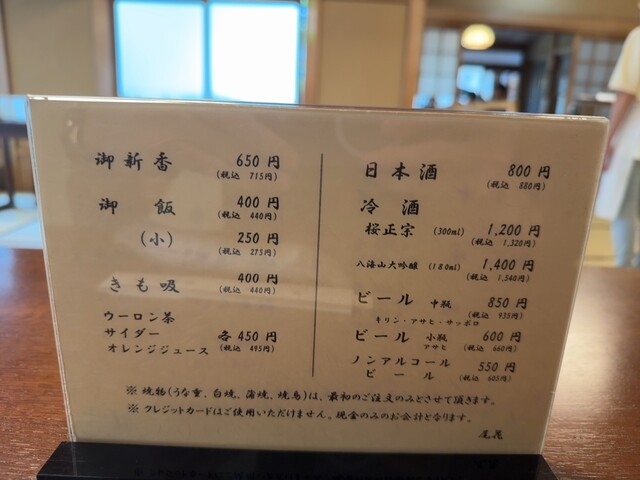 御新香 650円
(税込 715円)
御飯 400円
(税込 440円)
(小) 250円
(税込 275円)
きも吸 400円
(税込 440円)
ウーロン茶
サイダー 各450円
オレンジジュース (税込 495円)
日本酒 800円
(税込 880円)
冷酒
桜正宗 (300ml) 1,200円
(税込 1,320円)
八海山大吟醸 (180ml) 1,400円
(税込 1,540円)
ビール 中瓶 850円
キリン・アサヒ・サッポロ (税込 935円)
ビール 小瓶 600円
アサヒ (税込 660円)
ノンアルコール 550円
ビール (税込 605円)
※ 焼物(うな重、白焼、蒲焼、焼鳥)は、最初のご注文のみとさせて頂きます。
※ クレジットカードはご使用いただけません。現金のみのお会計となります。
尾花